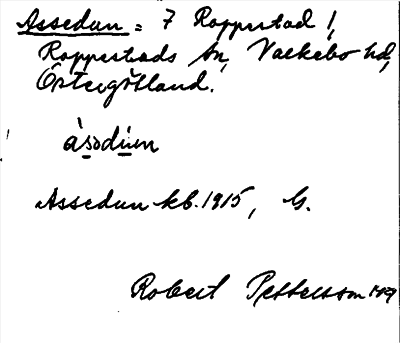 Assedun = 7 Roppestad 1,
Roppestads sn, Valkebo hd,
Östergötland.
àsodium
Assedun kb. 1915, G.
Robert Pettersson